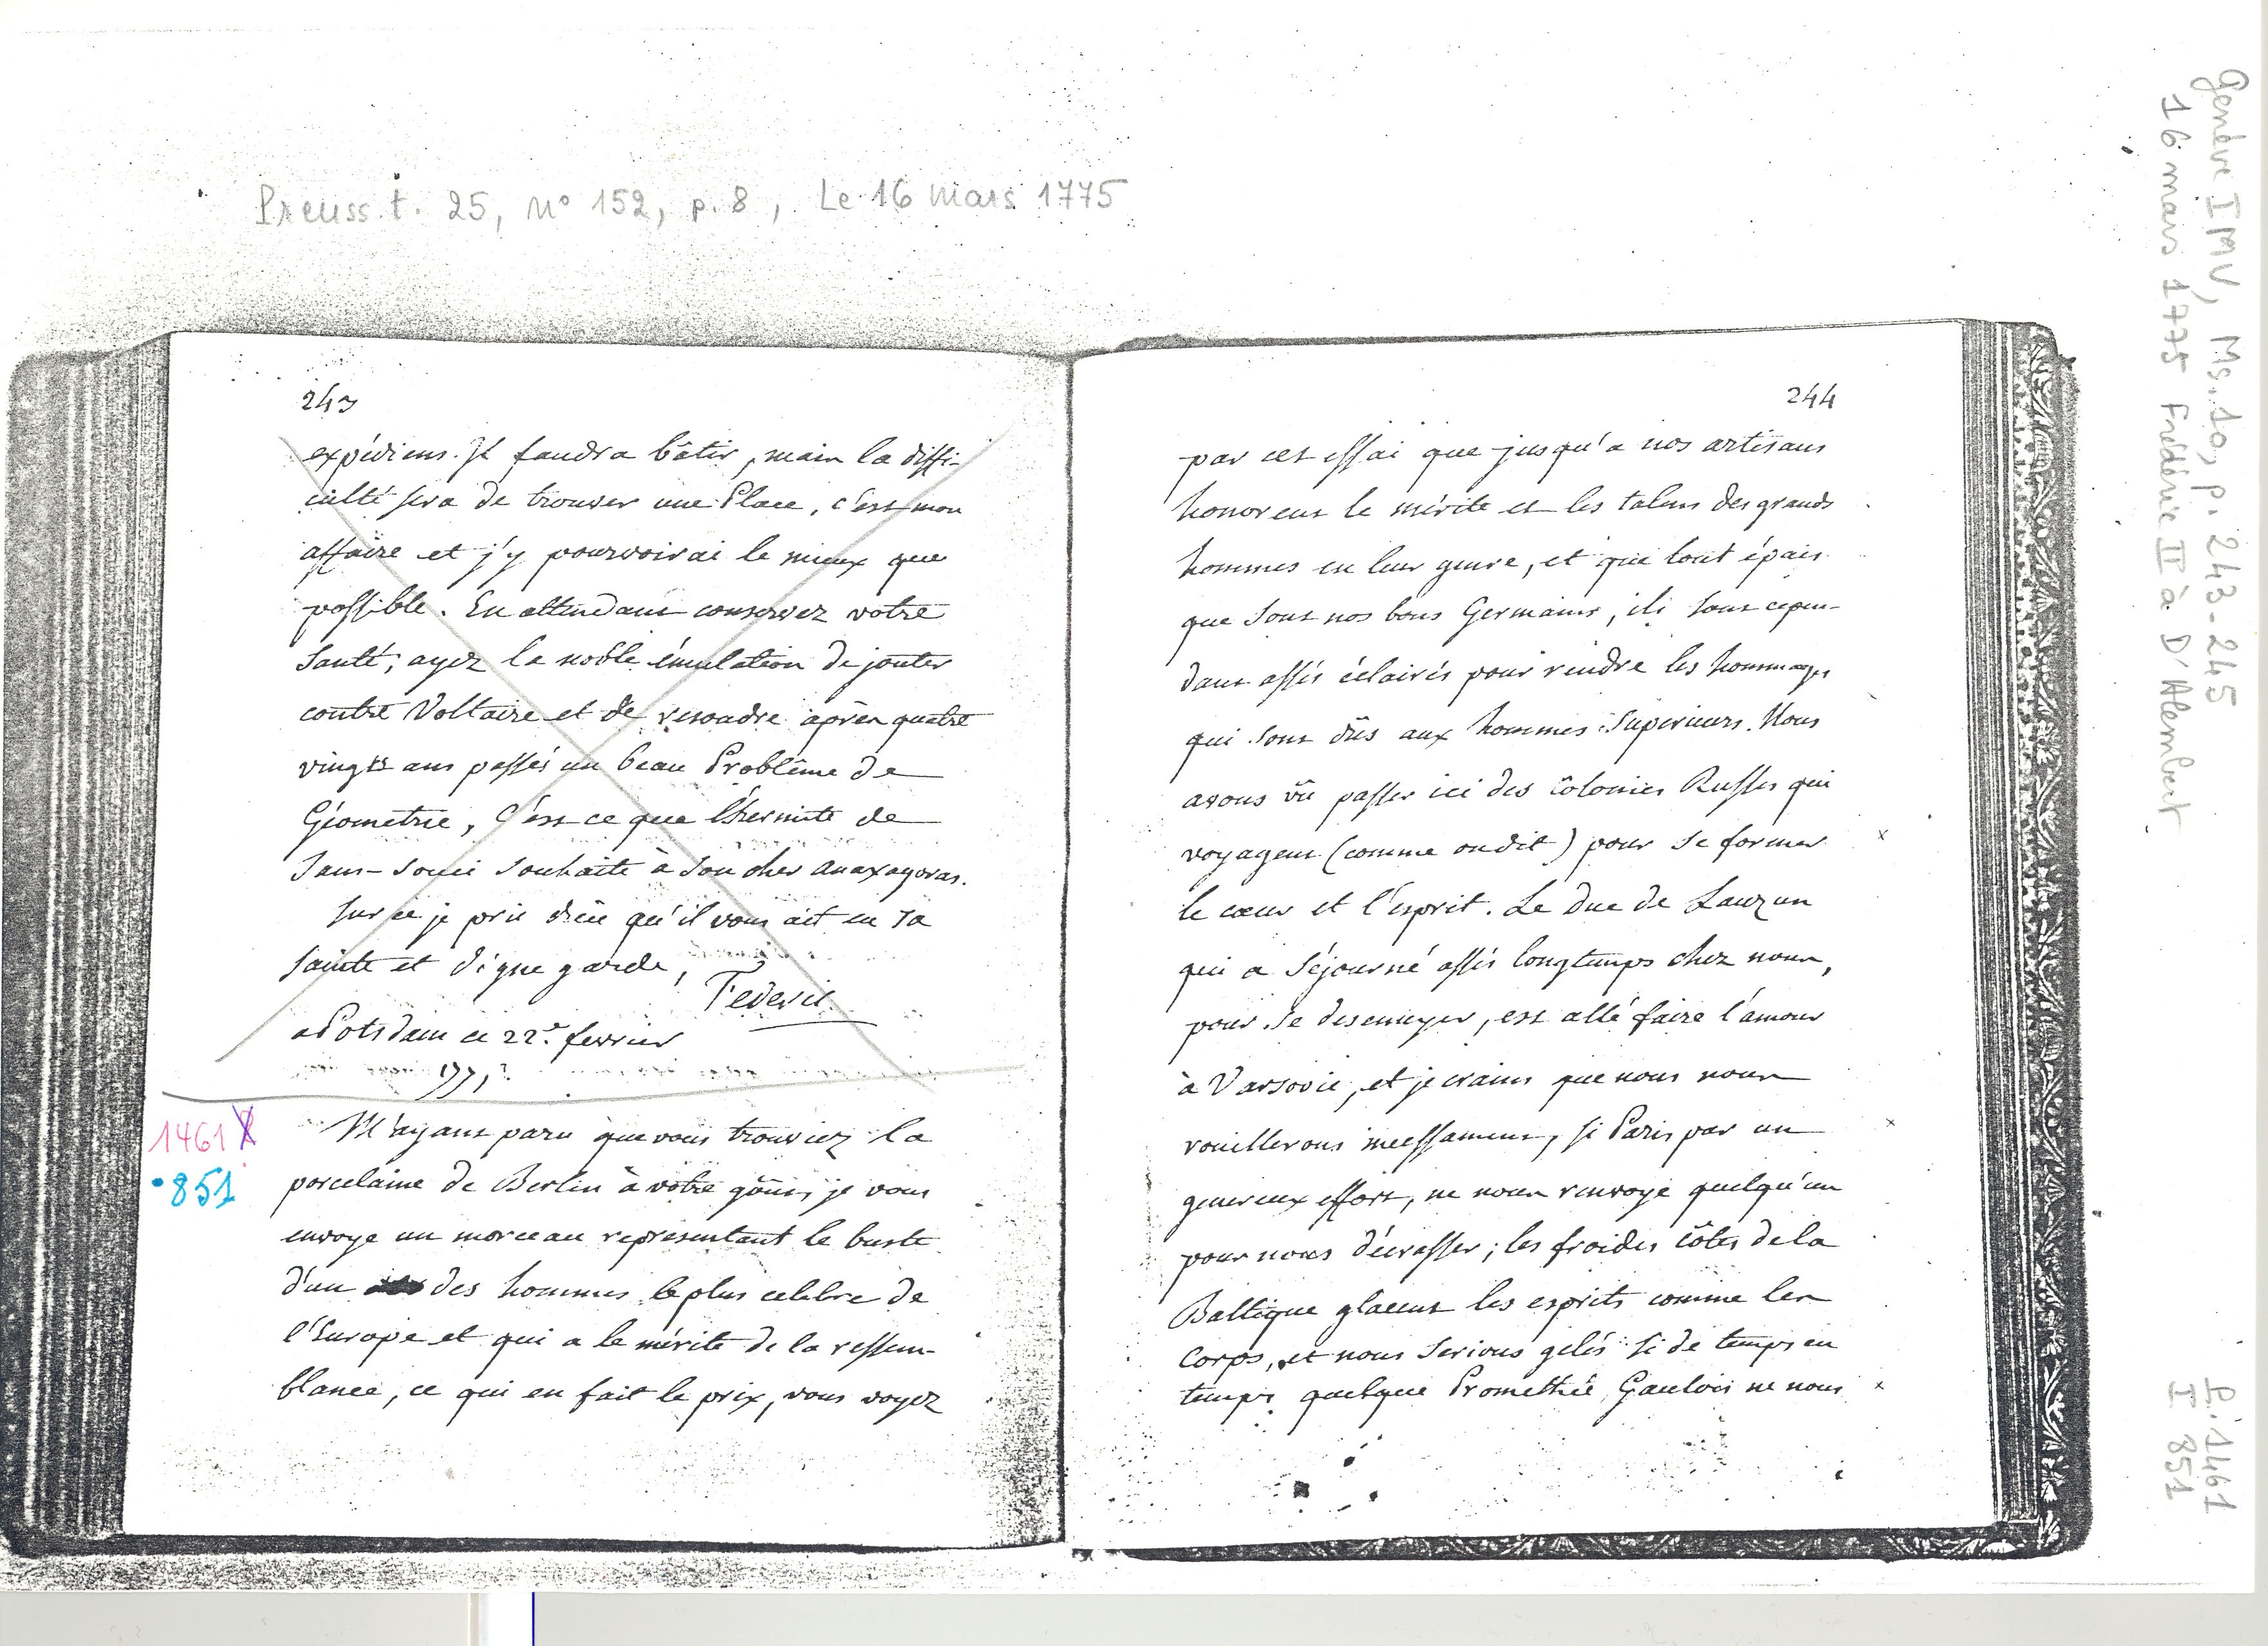 Preuss t. 25, N° 152, p. 8, Le 16 mars 1775
243
expédiens. Il faudra bâtir, mais la diffi-
culté sera de trouver une Place, c'est mon
affaire et j'y pourvoirai le mieux que
possible. En attendant conservez votre
santé, ayez la noble émulation de jouter
contre Voltaire et de resoudre après quatre
vingts ans passés un beau Problême de
Géometrie, C'est ce que l'hermite de
Sans-Souci souhaite à son cher anaxagoras.
Sur ce je prie dieu qu'il vous ait en sa
sainte et digne garde,
Federic
a Potsdam ce 22e fevrier
1775
1461 X
• 851
M'ayant paru que vous trouviez la
porcelaine de Berlin à votre goût, je vous
envoye un morceau representant le buste
d'un des hommes le plus celebre de
l'Europe et qui a le mérite de la ressem-
blance, ce qui en fait le prix, vous voyez
244
par cet essai que jusqu'a nos artisans
honorent le mérite et les talens des grands
hommes en leur genre, et que tout épais
que sont nos bons Germains, ils sont cepen-
dant assés éclairés pour rendre les hommages
qui sont dûs aux hommes Superieurs. Nous
avons vû passer ici des colonies Russes qui
voyagent (comme on dit) pour se former
le cœur et l'esprit. Le Duc de Lauzun
qui a Séjourné assés longtemps chez nous,
pour se desennuyer, est allé faire l'amour
à Varsovie, et je crains que nous nous
rouillerons incessament, si Paris par un
genereux effort, ne nous renvoye quelqu'un
pour nous décrasser; les froides côtes de la
Baltique glacent les esprits comme les
Corps, et nous serions gelés si de temps en
temps quelque Promethée Gaulois ne nous
Genève IMV, Ms. 10, p. 243-245
16 mars 1775 Frédéric II à D'Alembert
P. 1461
I 851